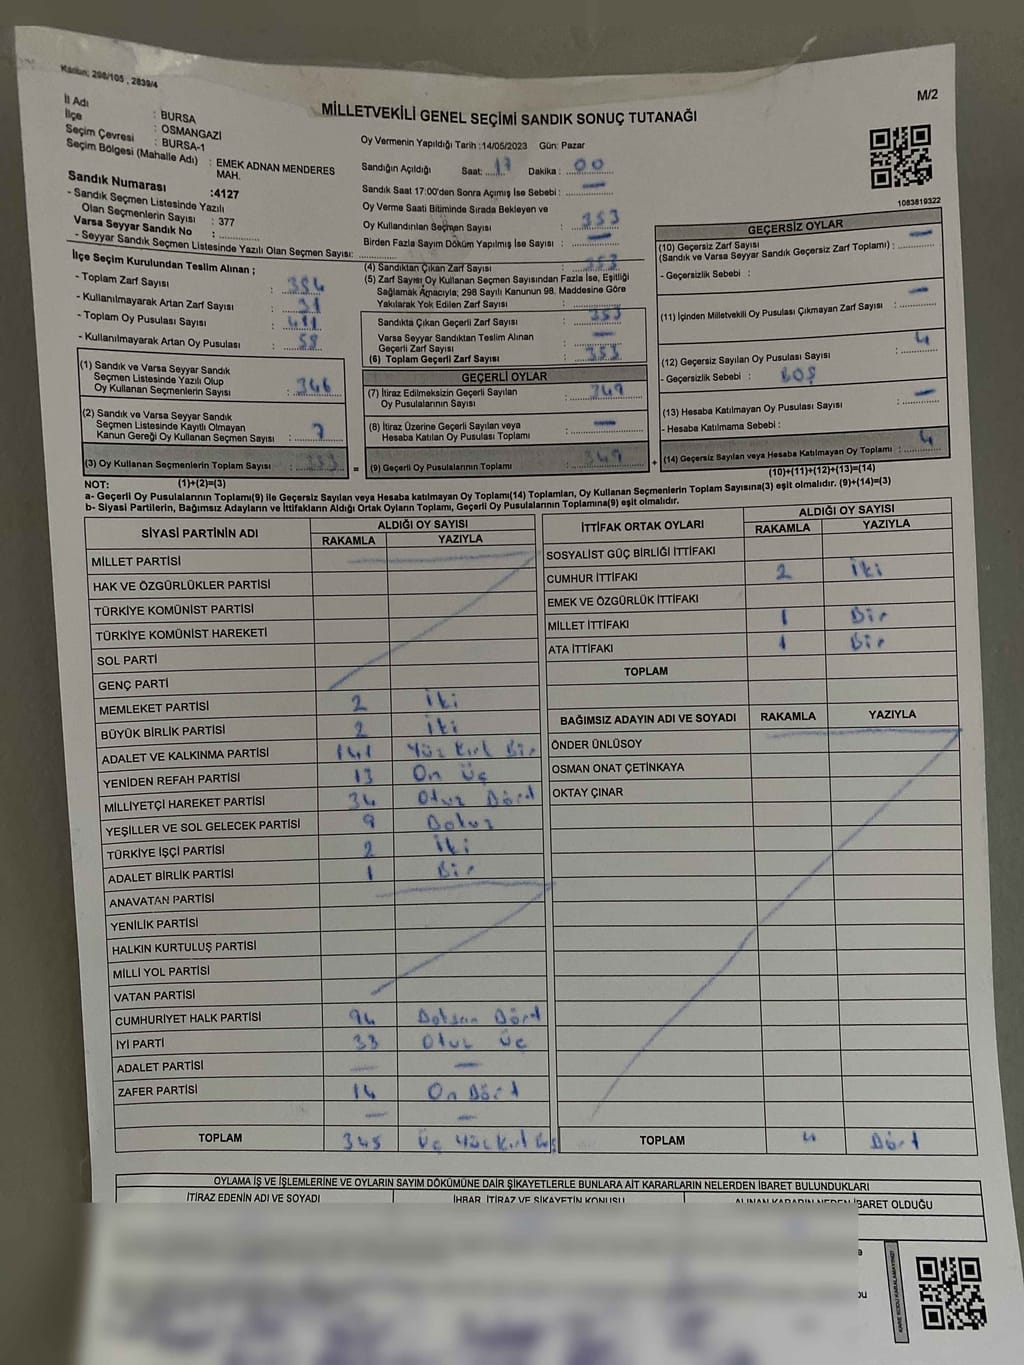 Kanun; 298/105 , 2839/4
M/2
MİLLETVEKİLİ GENEL SEÇİMİ SANDIK SONUÇ TUTANAĞI
İl Adı : BURSA
İlçe : OSMANGAZİ
Seçim Çevresi : BURSA-1
Seçim Bölgesi (Mahalle Adı) : EMEK ADNAN MENDERES MAH.
Sandık Numarası :4127
- Sandık Seçmen Listesinde Yazılı
Olan Seçmenlerin Sayısı : 377
Varsa Seyyar Sandık No :
- Seyyar Sandık Seçmen Listesinde Yazılı Olan Seçmen Sayısı:
İlçe Seçim Kurulundan Teslim Alınan ;
- Toplam Zarf Sayısı : 384
- Kullanılmayarak Artan Zarf Sayısı : 31
- Toplam Oy Pusulası Sayısı : 411
- Kullanılmayarak Artan Oy Pusulası : 58
(1) Sandık ve Varsa Seyyar Sandık
Seçmen Listesinde Yazılı Olup
Oy Kullanan Seçmenlerin Sayısı : 346
(2) Sandık ve Varsa Seyyar Sandık
Seçmen Listesinde Kayıtlı Olmayan
Kanun Gereği Oy Kullanan Seçmen Sayısı : 7
(3) Oy Kullanan Seçmenlerin Toplam Sayısı : 353
(1)+(2)=(3)
Oy Vermenin Yapıldığı Tarih :14/05/2023 Gün: Pazar
Sandığın Açıldığı Saat: 17 Dakika : 00
Sandık Saat 17:00'den Sonra Açımış İse Sebebi : —
Oy Verme Saati Bitiminde Sırada Bekleyen ve
Oy Kullandırılan Seçmen Sayısı : 353
Birden Fazla Sayım Döküm Yapılmış İse Sayısı : —
(4) Sandıktan Çıkan Zarf Sayısı : 353
(5) Zarf Sayısı Oy Kullanan Seçmen Sayısından Fazla İse, Eşitliği
Sağlamak Amacıyla; 298 Sayılı Kanunun 98. Maddesine Göre
Yakılarak Yok Edilen Zarf Sayısı :
Sandıkta Çıkan Geçerli Zarf Sayısı : 353
Varsa Seyyar Sandıktan Teslim Alınan
Geçerli Zarf Sayısı : —
(6) Toplam Geçerli Zarf Sayısı : 353
GEÇERLİ OYLAR
(7) İtiraz Edilmeksizin Geçerli Sayılan
Oy Pusulalarının Sayısı : 349
(8) İtiraz Üzerine Geçerli Sayılan veya
Hesaba Katılan Oy Pusulası Toplamı : —
= (9) Geçerli Oy Pusulalarının Toplamı : 349
1083819322
GEÇERSİZ OYLAR
(10) Geçersiz Zarf Sayısı
(Sandık ve Varsa Seyyar Sandık Geçersiz Zarf Toplamı) : —
- Geçersizlik Sebebi :
(11) İçinden Milletvekili Oy Pusulası Çıkmayan Zarf Sayısı : —
(12) Geçersiz Sayılan Oy Pusulası Sayısı : 4
- Geçersizlik Sebebi : BOŞ
(13) Hesaba Katılmayan Oy Pusulası Sayısı : —
- Hesaba Katılmama Sebebi :
+ (14) Geçersiz Sayılan veya Hesaba Katılmayan Oy Toplamı : 4
(10)+(11)+(12)+(13)=(14)
NOT:
a- Geçerli Oy Pusulalarının Toplamı(9) ile Geçersiz Sayılan veya Hesaba katılmayan Oy Toplamı(14) Toplamları, Oy Kullanan Seçmenlerin Toplam Sayısına(3) eşit olmalıdır. (9)+(14)=(3)
b- Siyasi Partilerin, Bağımsız Adayların ve İttifakların Aldığı Ortak Oyların Toplamı, Geçerli Oy Pusulalarının Toplamına(9) eşit olmalıdır.
SİYASİ PARTİNİN ADI ALDIĞI OY SAYISI
RAKAMLA YAZIYLA
MİLLET PARTİSİ
HAK VE ÖZGÜRLÜKLER PARTİSİ
TÜRKİYE KOMÜNİST PARTİSİ
TÜRKİYE KOMÜNİST HAREKETİ
SOL PARTİ
GENÇ PARTİ
MEMLEKET PARTİSİ 2 İki
BÜYÜK BİRLİK PARTİSİ 2 İki
ADALET VE KALKINMA PARTİSİ 141 Yüz Kırk Bir
YENİDEN REFAH PARTİSİ 13 On Üç
MİLLİYETÇİ HAREKET PARTİSİ 34 Otuz Dörd
YEŞİLLER VE SOL GELECEK PARTİSİ 9 Dokuz
TÜRKİYE İŞÇİ PARTİSİ 2 İki
ADALET BİRLİK PARTİSİ 1 Bir
ANAVATAN PARTİSİ
YENİLİK PARTİSİ
HALKIN KURTULUŞ PARTİSİ
MİLLİ YOL PARTİSİ
VATAN PARTİSİ
CUMHURİYET HALK PARTİSİ 94 Doksan Dörd
İYİ PARTİ 33 Otuz Üç
ADALET PARTİSİ — —
ZAFER PARTİSİ 14 On Dörd
— —
TOPLAM 345 Üç Yüz Kırk Beş
İTTİFAK ORTAK OYLARI ALDIĞI OY SAYISI
RAKAMLA YAZIYLA
SOSYALİST GÜÇ BİRLİĞİ İTTİFAKI
CUMHUR İTTİFAKI 2 İki
EMEK VE ÖZGÜRLÜK İTTİFAKI
MİLLET İTTİFAKI 1 Bir
ATA İTTİFAKI 1 Bir
TOPLAM
BAĞIMSIZ ADAYIN ADI VE SOYADI RAKAMLA YAZIYLA
ÖNDER ÜNLÜSOY
OSMAN ONAT ÇETİNKAYA
OKTAY ÇINAR
TOPLAM 4 Dörd
OYLAMA İŞ VE İŞLEMLERİNE VE OYLARIN SAYIM DÖKÜMÜNE DAİR ŞİKAYETLERLE BUNLARA AİT KARARLARIN NELERDEN İBARET BULUNDUKLARI
İTİRAZ EDENİN ADI VE SOYADI İHBAR, İTİRAZ VE ŞİKAYETİN KONUSU ALINAN KARARIN NEDEN İBARET OLDUĞU